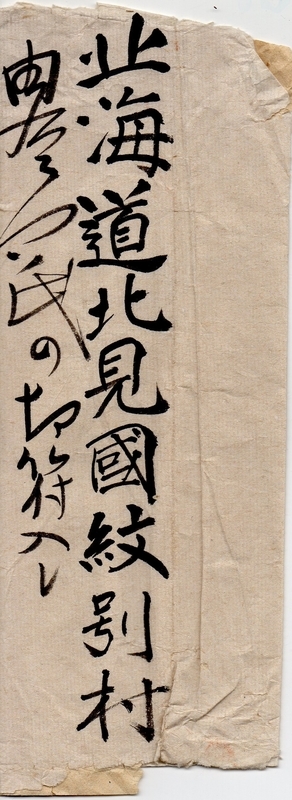 北海道北見國紋別村
氏の切符入レ